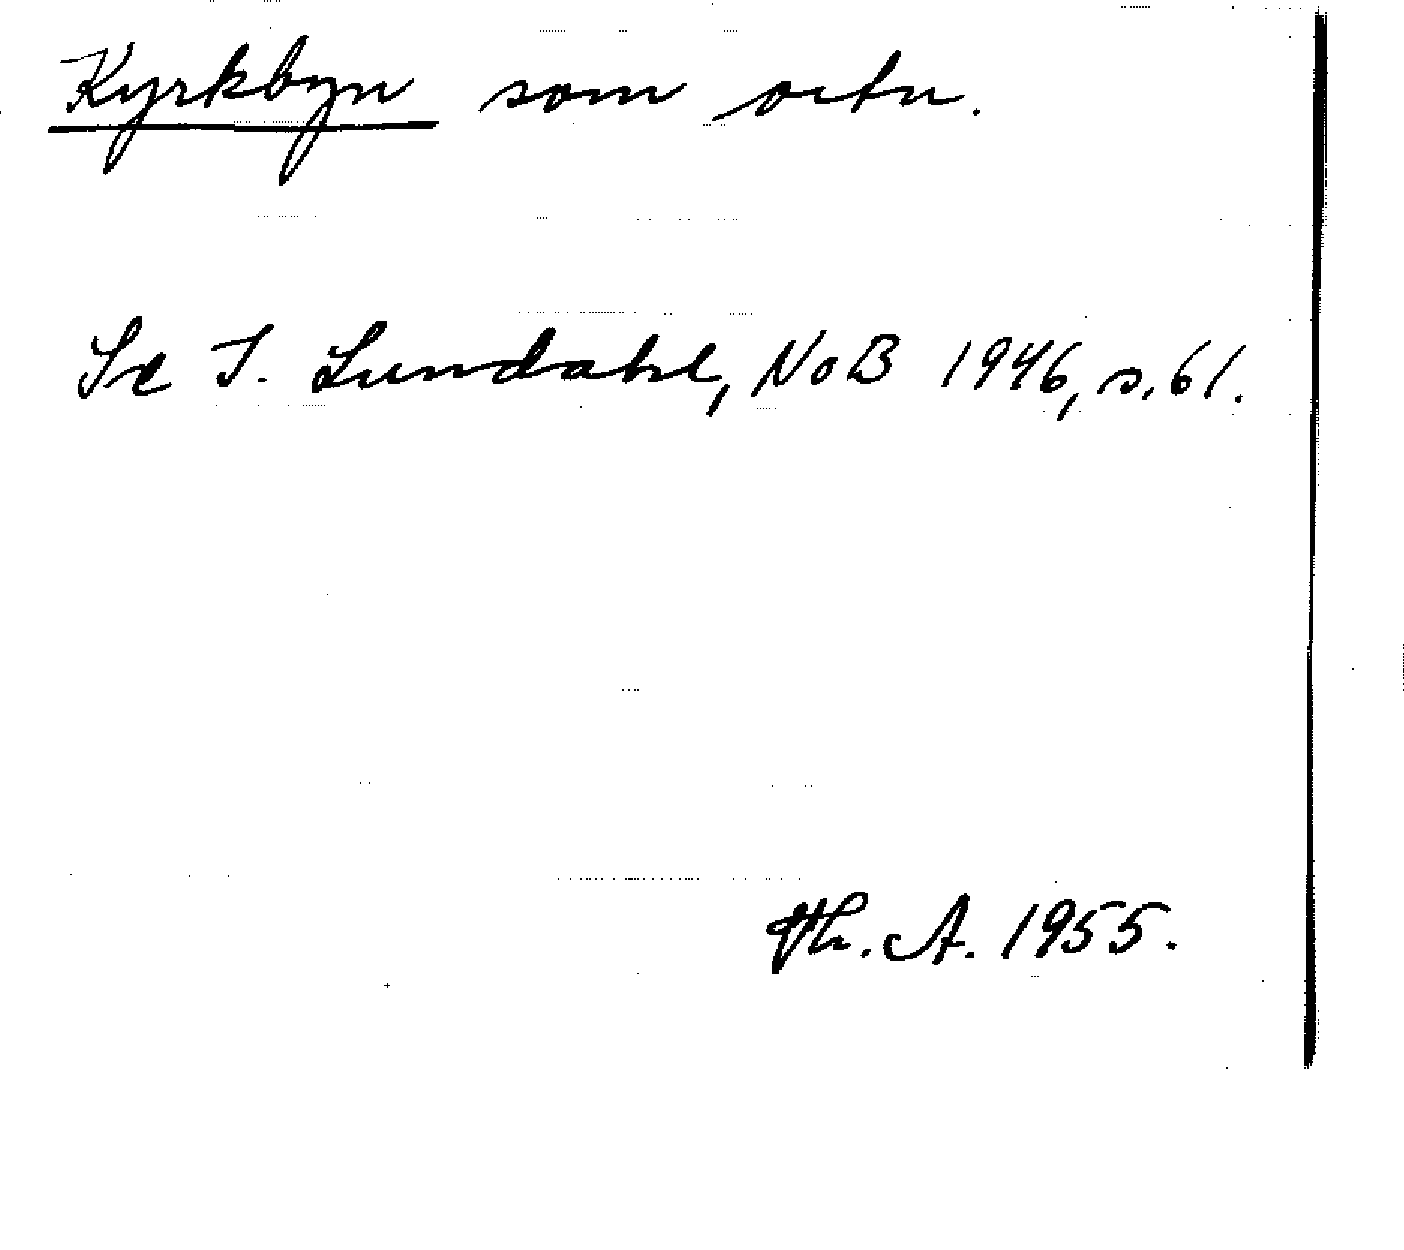 Kyrkbyn som ortn.
Se I. Lundahl, NoB 1946, s. 61.
Th. A. 1955.